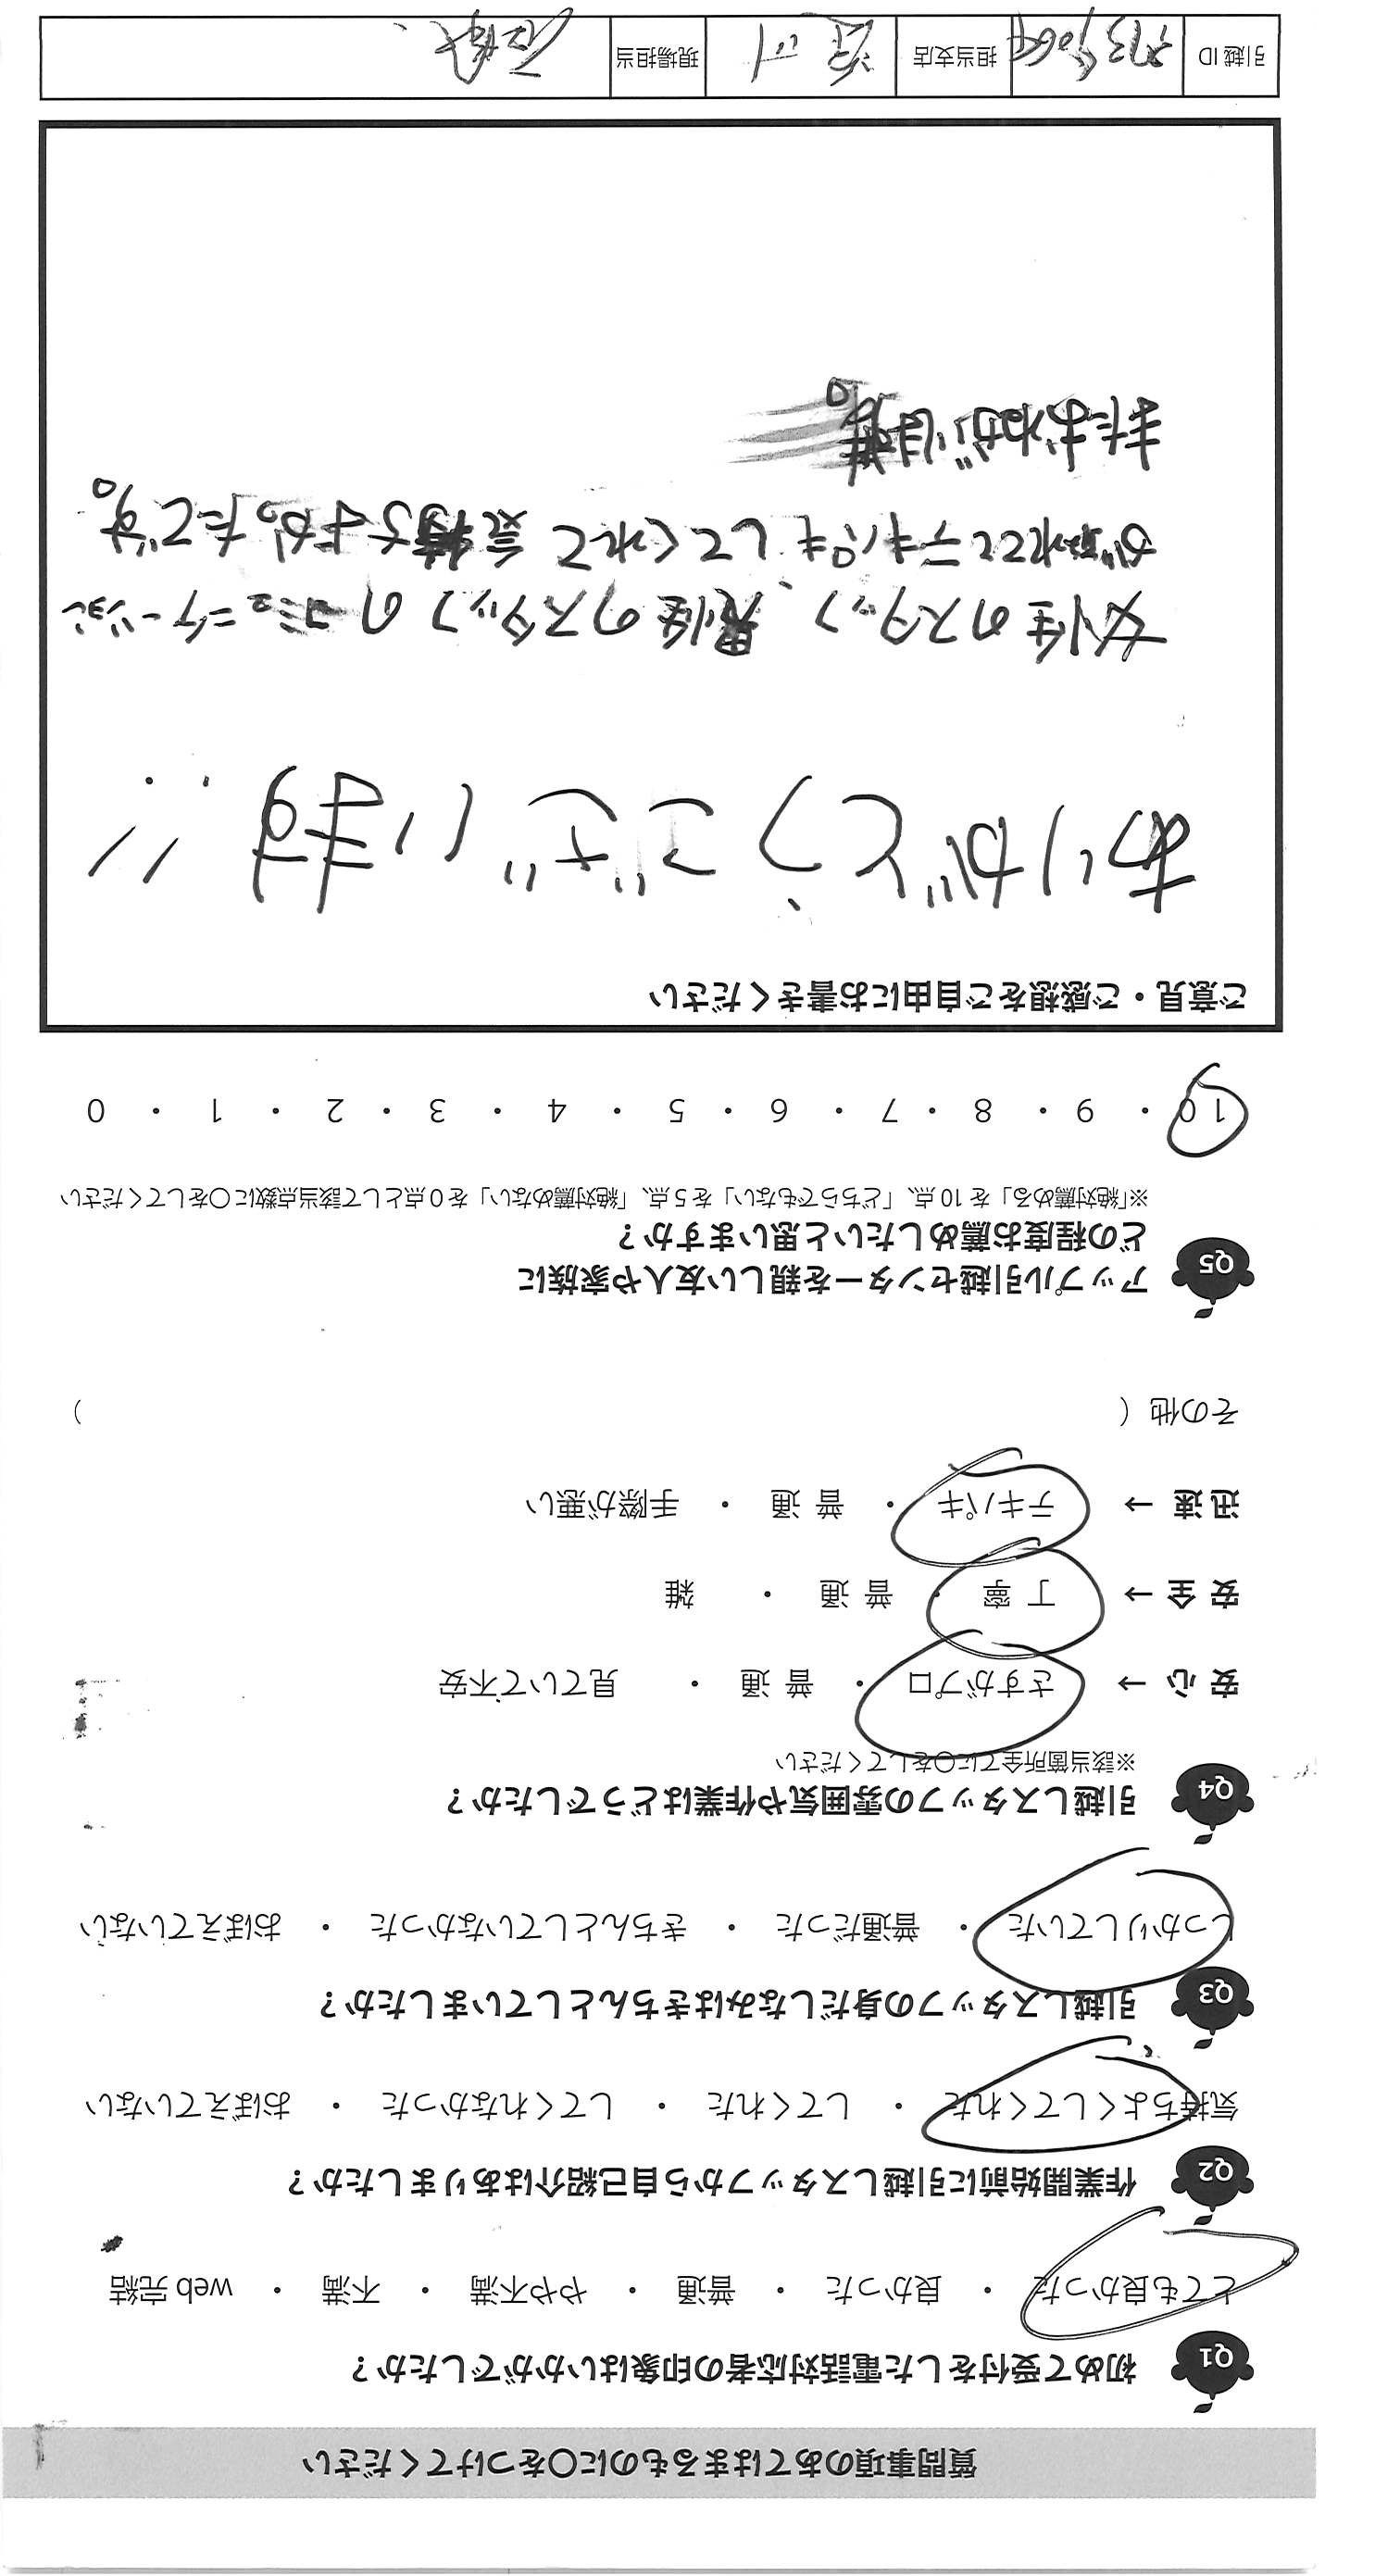 質問事項のあてはまるものに〇をつけてください
Q1 初めて受付をした電話対応者の印象はいかがでしたか？
とても良かった ・ 良かった ・ 普通 ・ やや不満 ・ 不満 ・ web 完結
Q2 作業開始前に引越しスタッフから自己紹介はありましたか？
気持ちよくしてくれた ・ してくれた ・ してくれなかった ・ おぼえていない
Q3 引越しスタッフの身だしなみはきちんとしていましたか？
しっかりしていた ・ 普通だった ・ きちんとしていなかった ・ おぼえていない
Q4 引越しスタッフの雰囲気や作業はどうでしたか？
※該当箇所全てに〇をしてください
安 心 → さすがプロ ・ 普 通 ・ 見ていて不安
安 全 → 丁 寧 ・ 普 通 ・ 雑
迅 速 → テキパキ ・ 普 通 ・ 手際が悪い
その他（ ）
Q5 アップル引越センターを親しい友人や家族に
どの程度お薦めしたいと思いますか？
※「絶対薦める」を 10 点、「どちらでもない」を 5 点、「絶対薦めない」を 0 点として該当点数に〇をしてください
10 ・ 9 ・ 8 ・ 7 ・ 6 ・ 5 ・ 4 ・ 3 ・ 2 ・ 1 ・ 0
ご意見・ご感想をご自由にお書きください
ありがとうございます!!
女性のスタッフ、男性のスタッフのコミュニケーション
が取れててテキパキしてくれて気持ちよかったです。
またおねがいします。
引越 ID 担当支店 現場担当